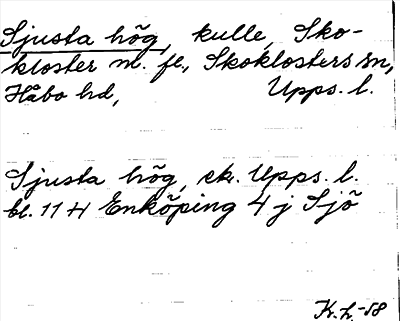 Sjusta hög, kulle, Sko-
kloster m. fl., Skoklosters sn,
Håbo hd, Upps. l.
Sjusta hög, ek. Upps. l.
bl. 11 H Enköping 4 j Sjö
K. h. -58